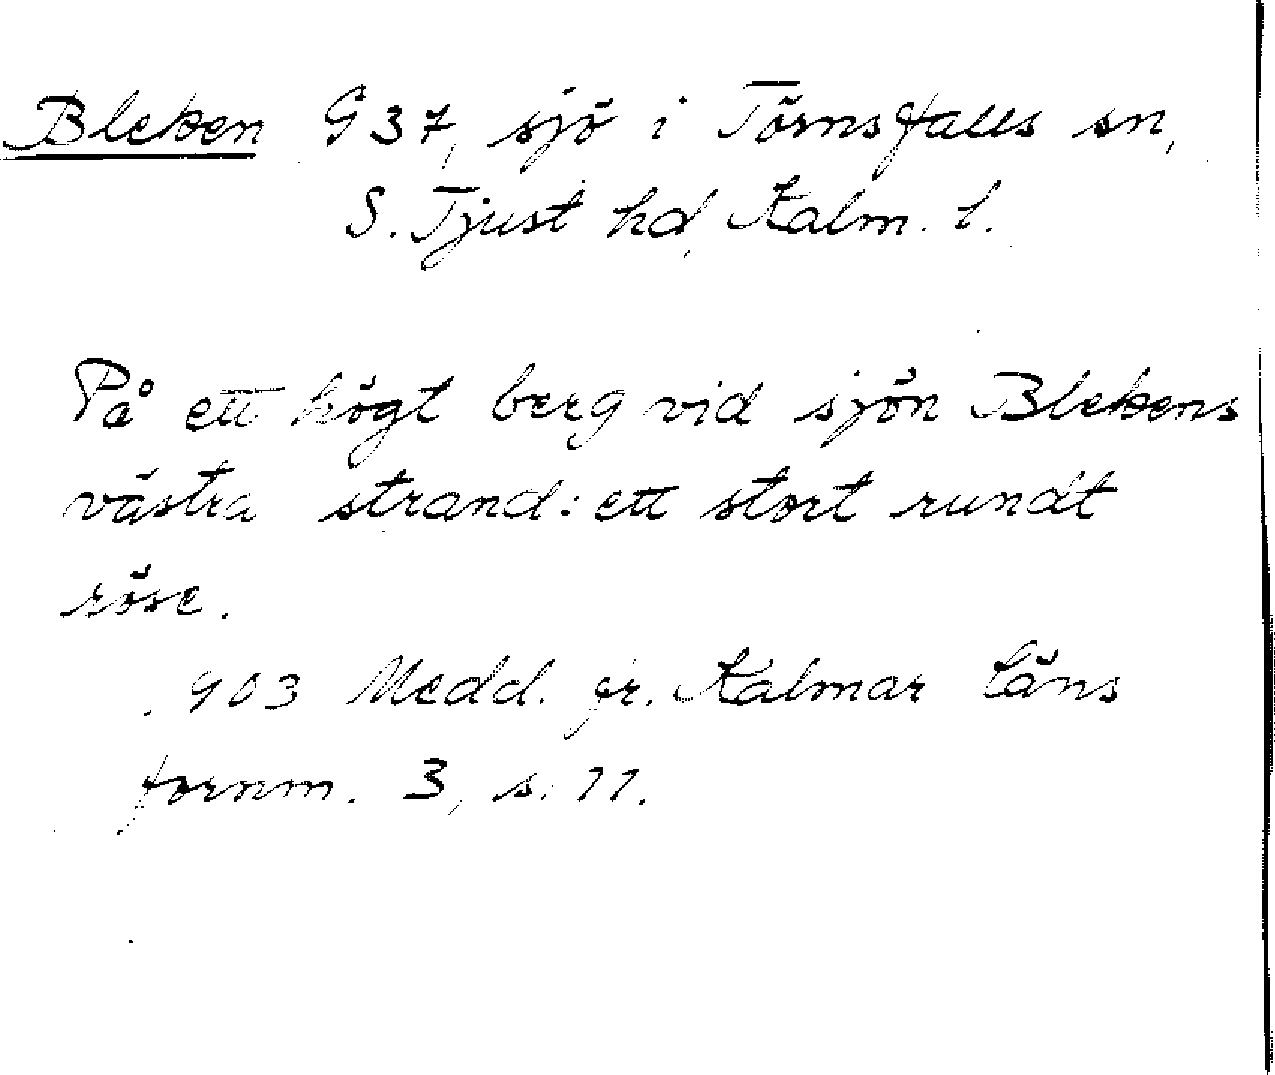 Bleken G 37, sjö i Törnsfalls sn,
S. Tjust hd, Kalm. l.
På ett högt berg vid sjön Blekens
västra strand: ett stort rundt
röse.
903 Medd. fr. Kalmar läns
fornm. 3, s. 11.